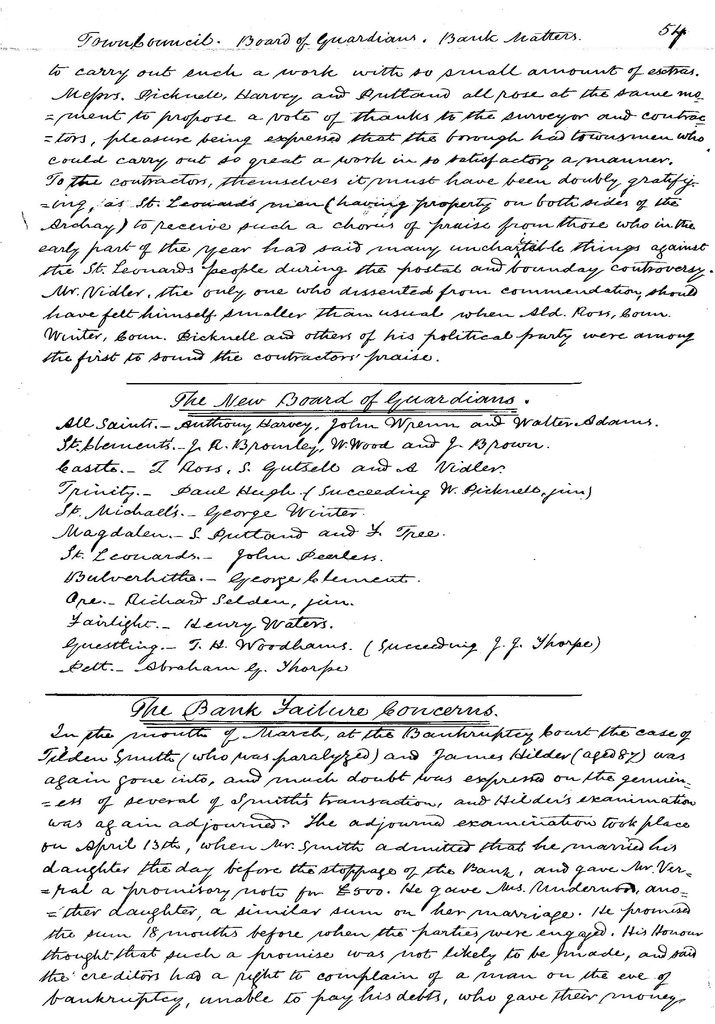 Town Council. Board of Guardians. Bank Matters. 54
to carry out such a work with so small amount of extras.
Messrs. Bicknell, Harvey and Putland all rose at the same mo-
=ment to propose a vote of thanks to the surveyor and contrac-
=tors, pleasure being expressed that the borough had townsmen who
could carry out so great a work in so satisfactory a manner.
To the contractors, themselves it must have been doubly gratify-
=ing, as St. Leonards men (having property on both sides of the
Archway) to receive such a chorus of praise from those who in the
early part of the year had said many uncharitable things against
the St. Leonards people during the postal and bounday controversy.
Mr. Vidler, the only one who dissented from commendation, should
have felt himself smaller than usual when Ald. Ross, Coun.
Winter, Coun. Bicknell and others of his political party were among
the first to sound the contractors' praise.
The New Board of Guardians.
All Saints.- Anthony Harvey, John Wrenn and Walter Adams.
St. Clements.- J. R. Bromley, W. Wood and J. Brown.
Castle.- T. Ross, S. Gutsell and A Vidler.
Trinity.- Paul Hugh. (Succeeding W. Bicknell, jun)
St. Michael's.- George Winter.
Magdalen.- S. Putland and F. Tree.
St. Leonards.- John Peerless.
Bulverhithe.- George Clement.
Ore.- Richard Selden, jun.
Fairlight.- Henry Waters.
Guestling.- T. H. Woodhams. (Succeeding J. J. Thorpe)
Pett.- Abraham G. Thorpe
The Bank Failure Concerns.
In the month of March, at the Bankruptcy Court the case of
Tilden Smith (who was paralyzed) and James Hilder (aged 87) was
again gone into, and much doubt was expressed on the genuin-
=ess of several of Smith's transaction, and Hilder's examination
was again adjourned. The adjourned examination took place
on April 13th, when Mr. Smith admitted that he married his
daughter the day before the stoppage of the Bank, and gave Mr. Ver-
=ral a promisory note for £500. He gave Mrs. Underwood, ano-
=ther daughter, a similar sum on her marriage. He promised
the sum 18 months before when the parties were engaged. His Honour
thought that such a promise was not likely to be made, and said
the creditors had a right to complain of a man on the eve of
bankruptcy, unable to pay his debts, who gave their money